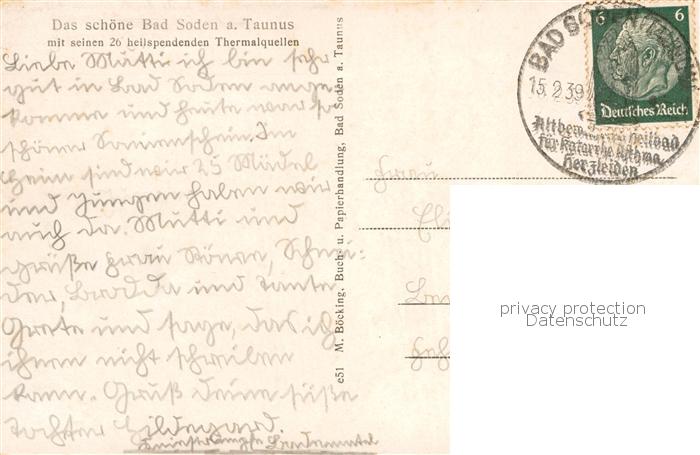 Das schöne Bad Soden a. Taunus
mit seinen 26 heilspendenden Thermalquellen
Liebe Mutti ich bin sehr
gut in Bad Soden ange
komme und heute war so
schöner Sonnenschein. Im
Heim sind wir 25 Mädel
und Jungen haben wir
auch da. Mutti und
grüße Frau Schnei-
der, und Tante
Grete und sage, das ich
ihnen nicht schreiben
kann. Gruß deine süße
Tochter Hildegard.
e51 M. Böcking, Buch- u. Papierhandlung, Bad Soden a. Taunus
BAD SODEN (TAUNUS)
15.2.39
Heilbad
für Katarrhe Asthma
Herzleiden
6 6
Deutsches Reich
Frau
privacy protection
Datenschutz